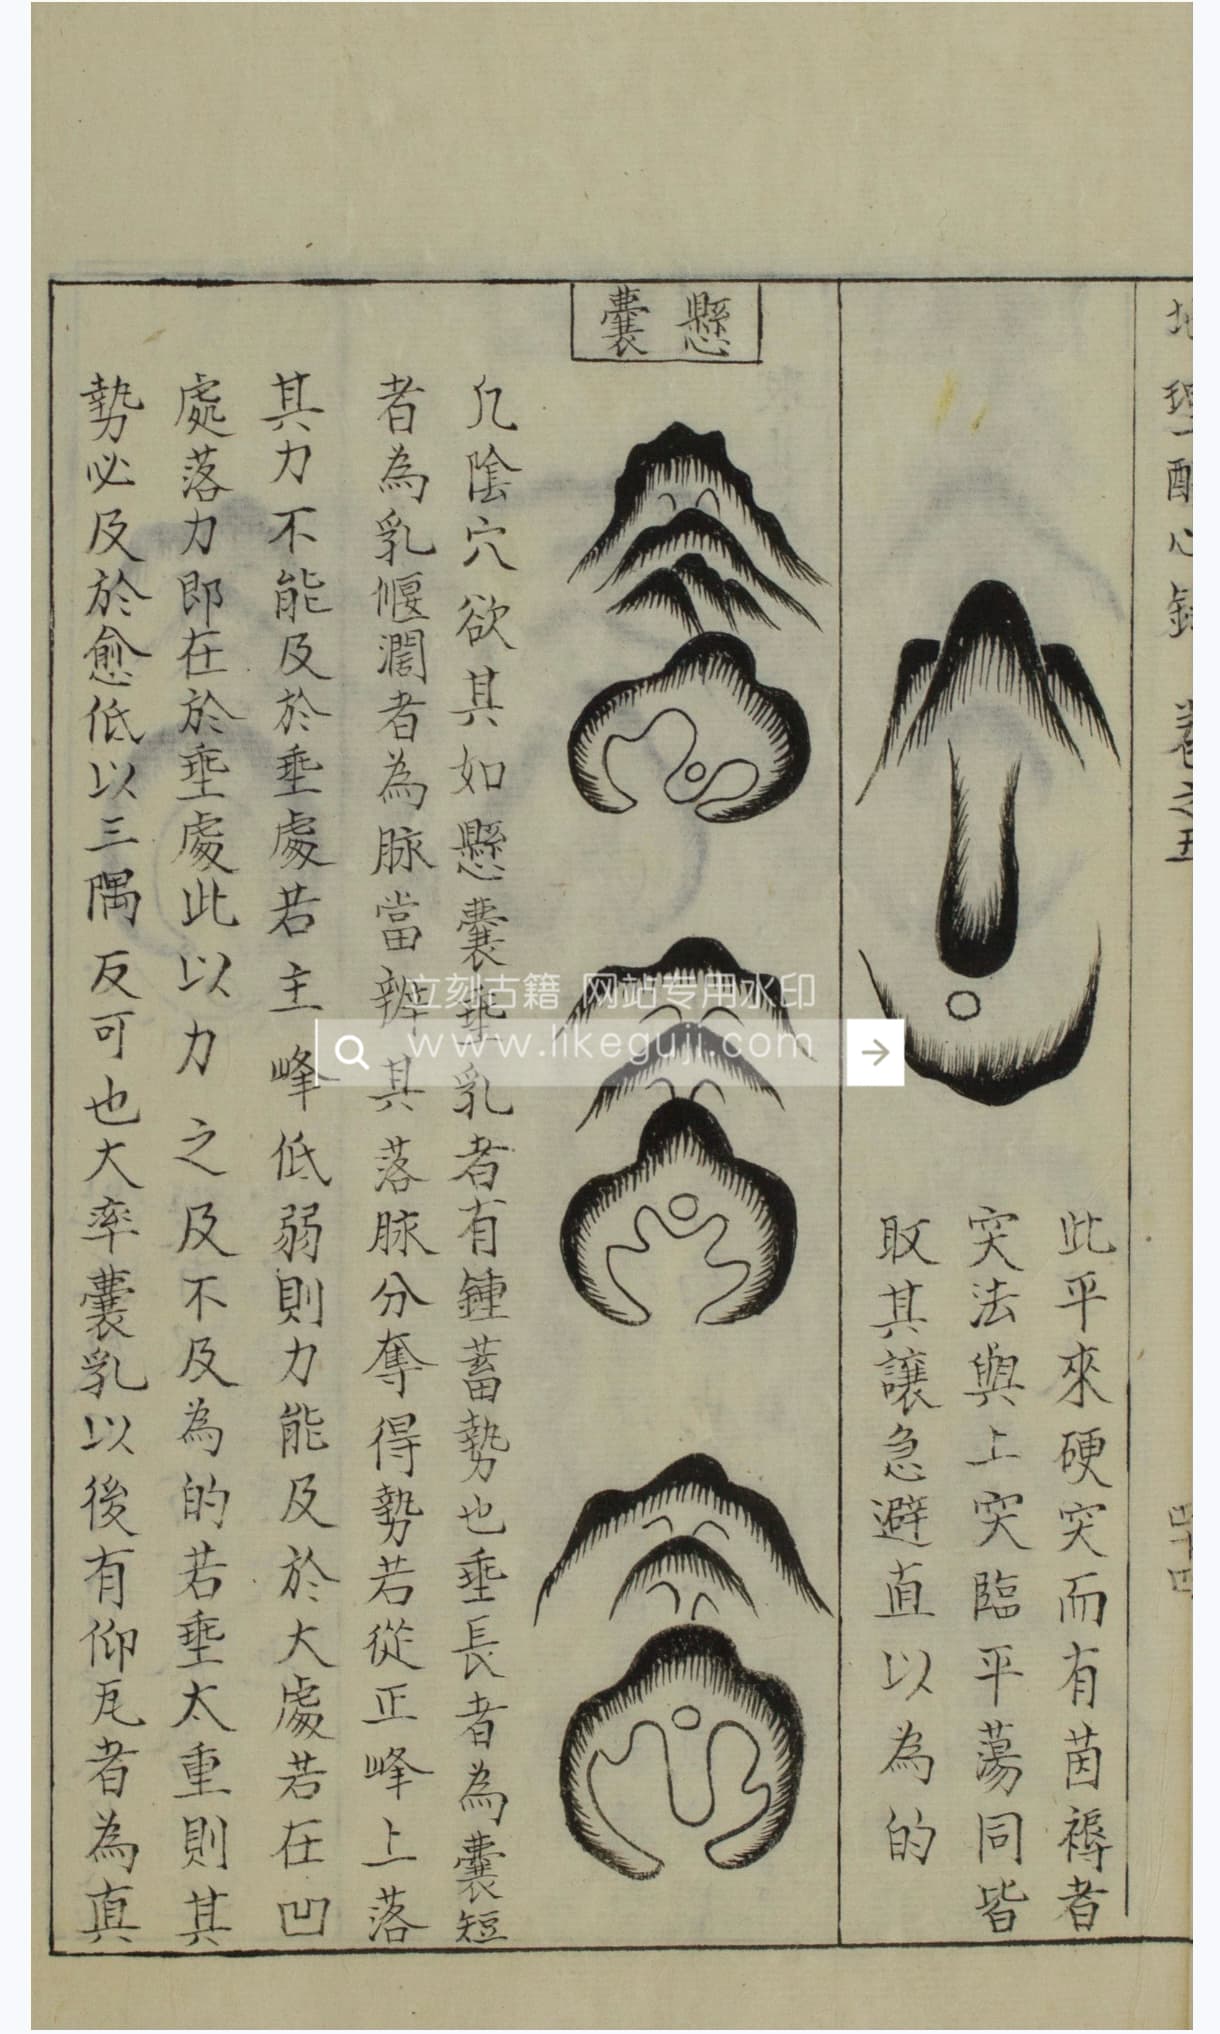 地理醒心錄 卷之五 四十四
此平來硬突而有茵褥者
突法與上突臨平蕩同皆
取其讓急避直以為的
懸囊
凢陰穴欲其如懸囊垂乳者有鍾蓄勢也垂長者為囊短
者為乳偃濶者為脉當辨其落脉分奪得勢若從正峰上落
其力不能及於垂處若主峰低弱則力能及於大處若在凹
處落力即在於垂處此以力之及不及為的若垂太重則其
勢必及於愈低以三隅反可也大率囊乳以後有仰瓦者為真
立刻古籍 网站专用水印
www.likeguji.com